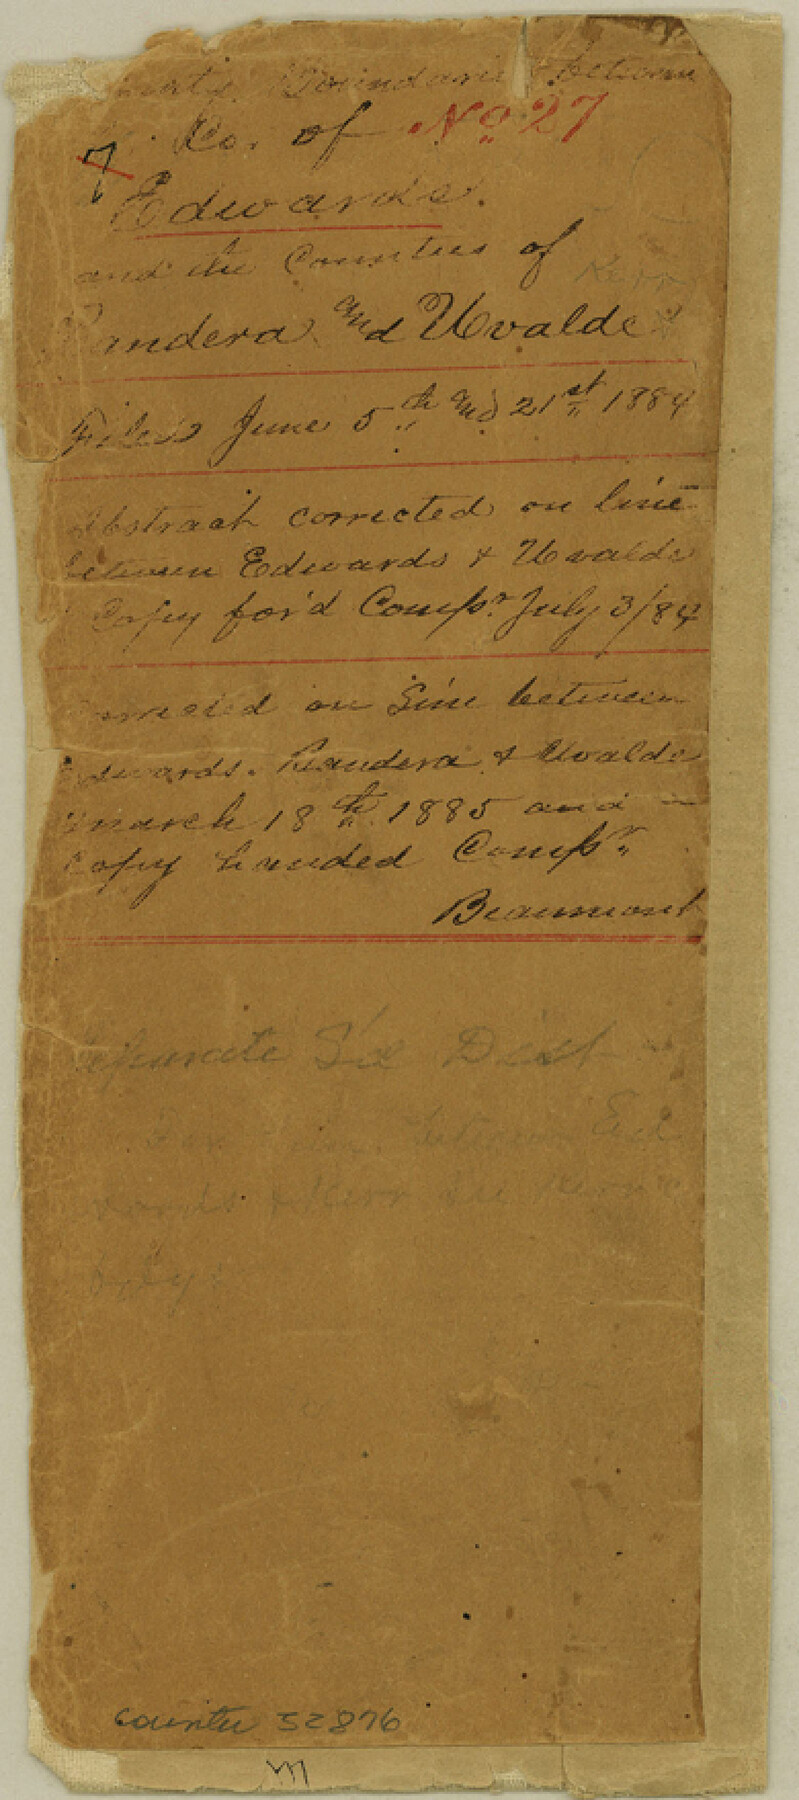 County Boundaries between
Co. of No. 27
7
Edwards.
and the Counties of Kerr
Bandera and Uvalde
Filed June 5th and 21st 1884
Abstract corrected on line
between Edwards & Uvalde
Copy for'd Compr. July 3/84
Corrected on line between
Edwards. Bandera & Uvalde
March 18th 1885 and
Copy handed Compr.
Beaumont
Separate S'd Dist
For line between Ed
wards & Kerr see Kerr Co
Bdy:
counter 32876